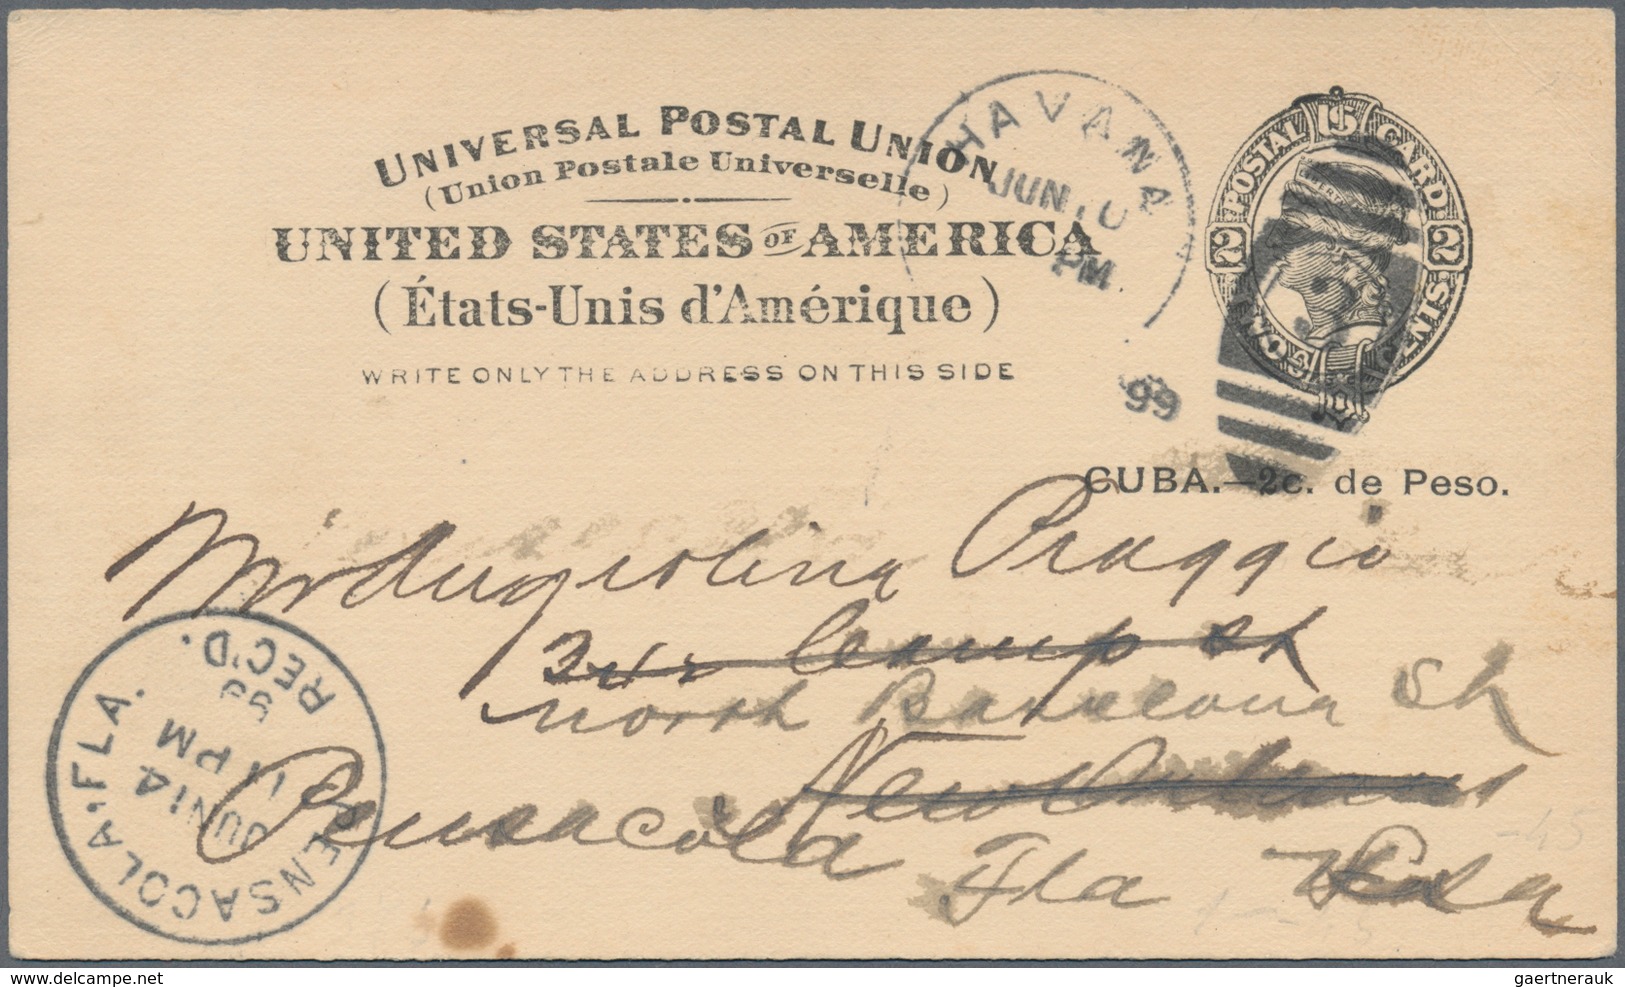 UNIVERSAL POSTAL UNION
(Union Postale Universelle)
UNITED STATES OF AMERICA
(États-Unis d'Amérique)
WRITE ONLY THE ADDRESS ON THIS SIDE
HAVANA
JUN
PM
99
POSTAL CARD
2 2
CUBA.—2c. de Peso.
Praggio
Camp st
north Barcelona St
New Orleans
Pensacola Fla
PENSACOLA. FLA.
JUN 14
11 PM
99
REC'D.
-45
delcampe.net
gaertnerauk